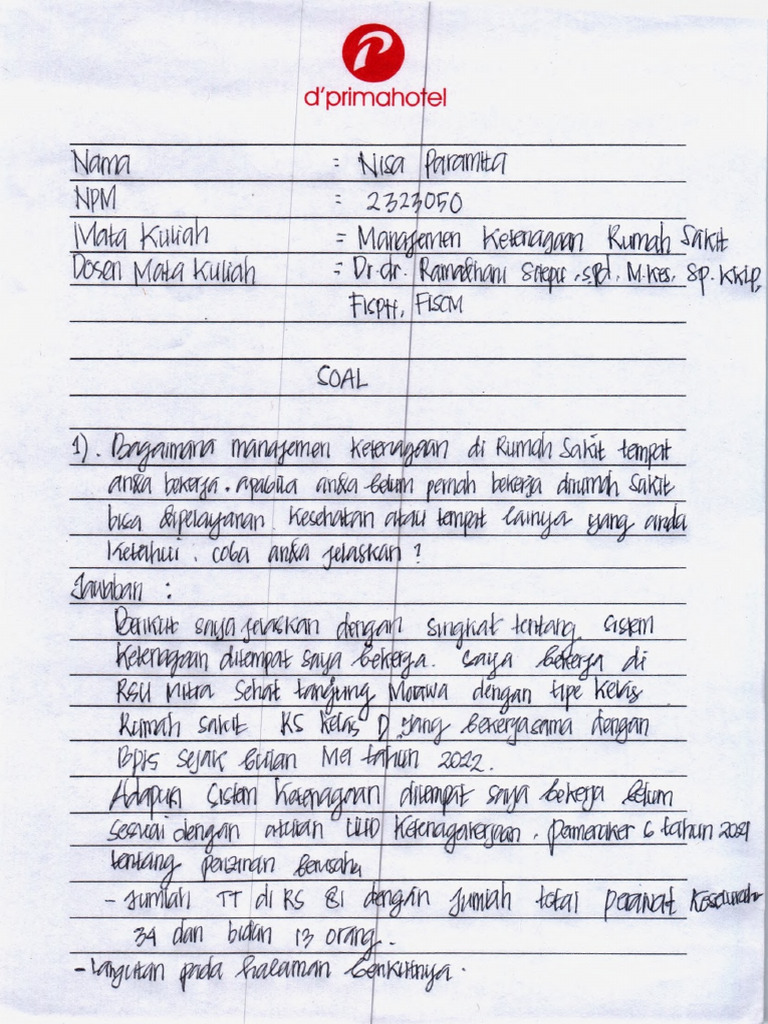 d'primahotel
Nama : Nisa Paramita
NPM : 2323050
Mata Kuliah : Manajemen Ketenagaan Rumah Sakit
Dosen Mata Kuliah : Dr. dr. Ramadhani Sitepu, S.Pd, M.Kes, Sp. KKLP,
FISPH, FISCM
SOAL
1). Bagaimana manajemen ketenagaan di Rumah Sakit tempat
anda bekerja. apabila anda belum pernah bekerja dirumah sakit
bisa dipelayanan kesehatan atau tempat lainya yang anda
Ketahui. coba anda jelaskan ?
Jawaban :
Berikut saya jelaskan dengan singkat tentang sistem
Ketenagaan ditempat saya bekerja. saya bekerja di
RSU Mitra Sehat tanjung Morawa dengan tipe Kelas
Rumah sakit RS Kelas D yang bekerjasama dengan
Bpjs sejak bulan Mei tahun 2022.
Adapun sistem Ketenagaan ditempat saya bekerja belum
sesuai dengan aturan UUD Ketenagakerjaan. Permenaker 6 tahun
tentang perizinan berusaha
- Jumlah TT di RS 81 dengan jumlah total perawat Keseluruhan
34 dan bidan 13 orang.
- Lanjutan pada halaman berikutnya.